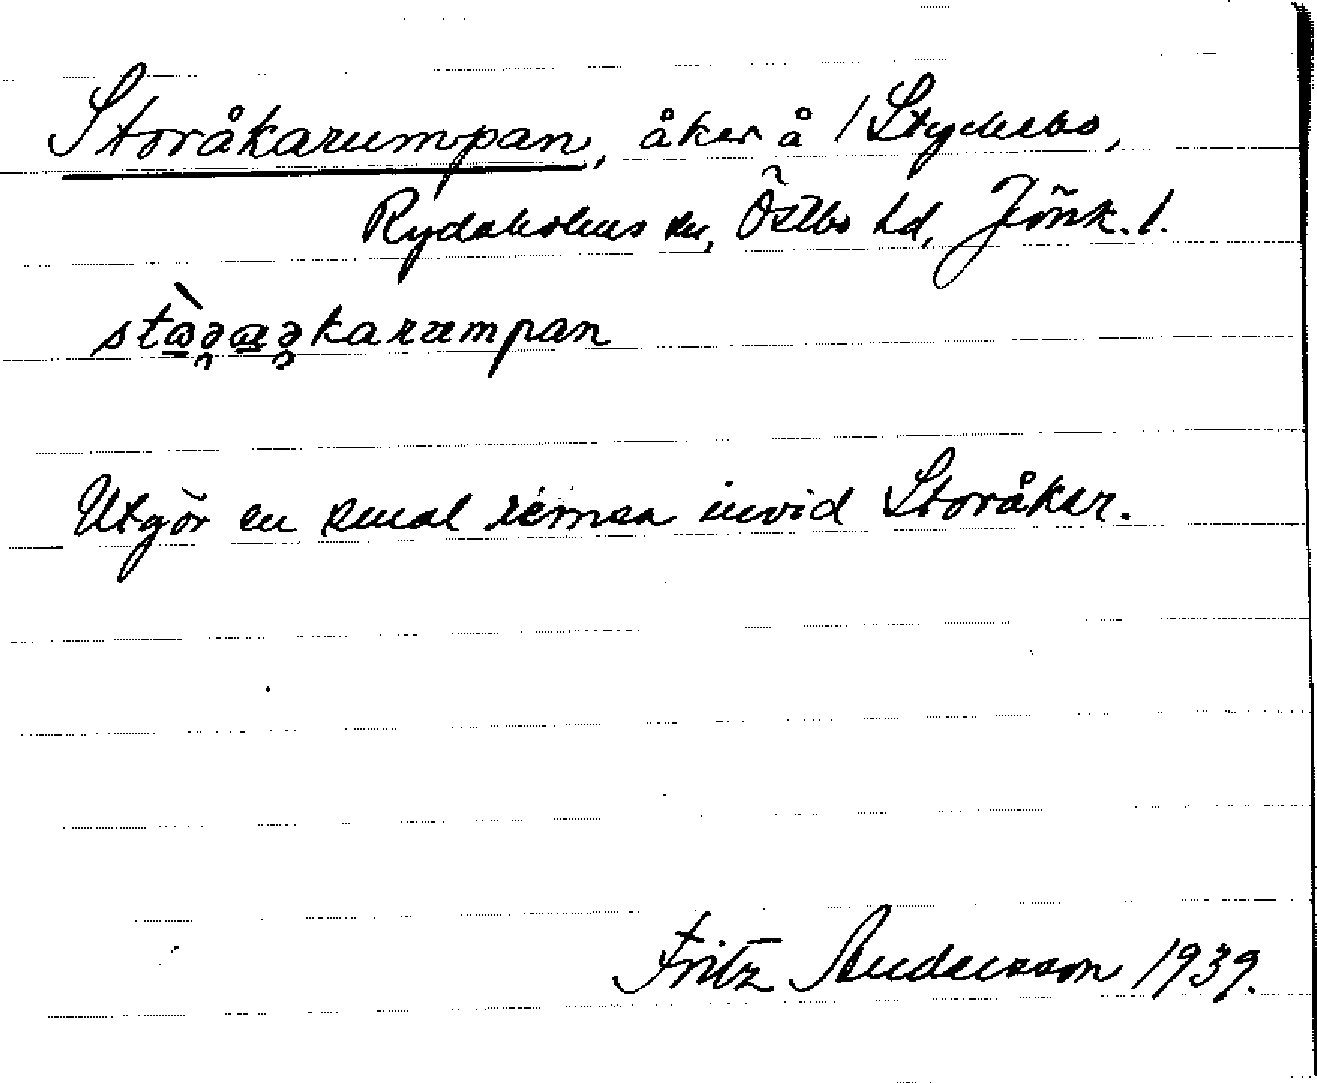 Storåkarumpan, åker å /Styckebo,
Rydaholms sn, Östbo hd, Jönk. l.
karumpan
Utgör en smal remsa invid Storåker.
Fritz Andersson 1939.